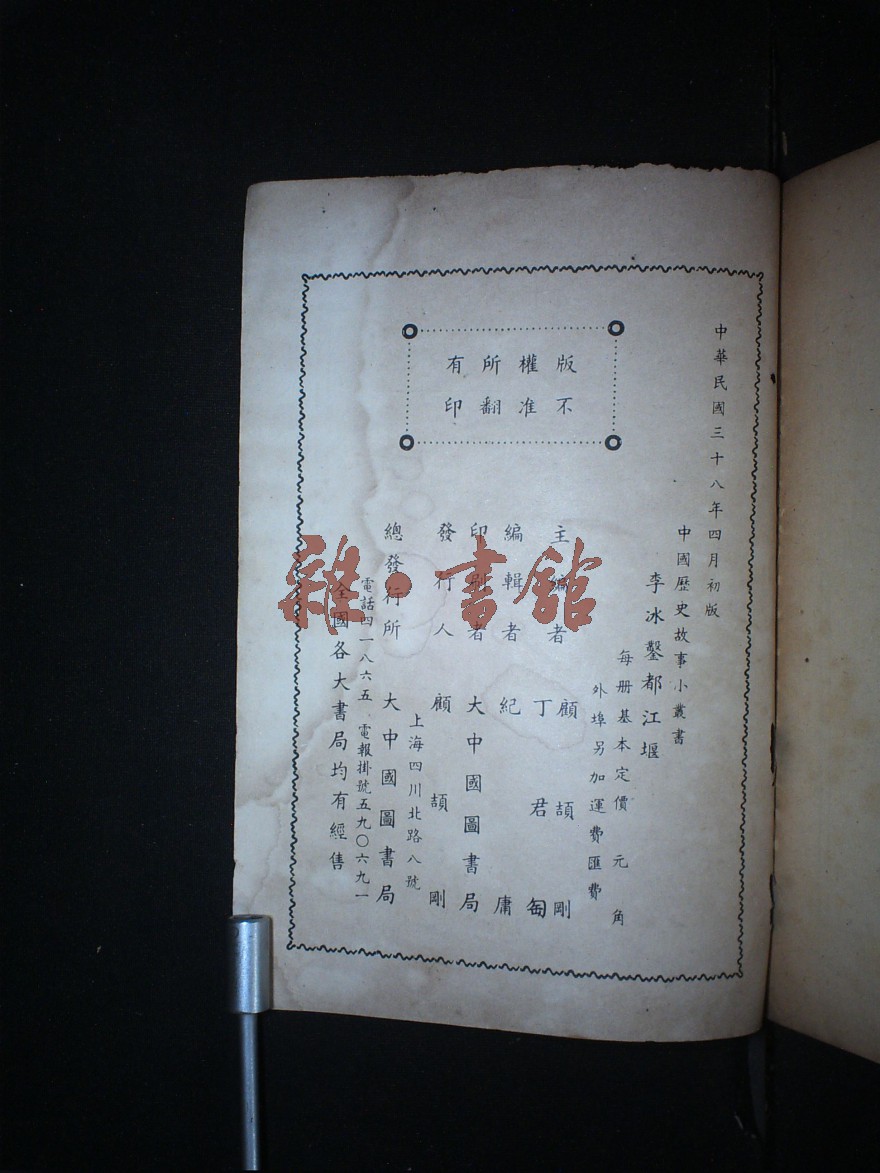 中華民國三十八年四月初版
中國歷史故事小叢書
李冰鑿都江堰
每册基本定價　元　角
外埠另加運費匯費
版權所有
不准翻印
主編者　顧頡剛　丁君匋
編輯者　紀庸
印刷者　大中國圖書局
發行人　顧頡剛
上海四川北路八號
總發行所　大中國圖書局
電話四一八六五　電報掛號五九〇六九一
全國各大書局均有經售
雜·書館